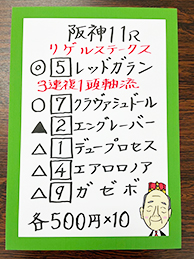 阪神11R
リゲルステークス
◎5レッドガラン
3連複1頭軸流
○7クラヴァシュドール
▲2エングレーバー
△1デュープロセス
△4エアロロノア
△9ガゼボ
各500円×10